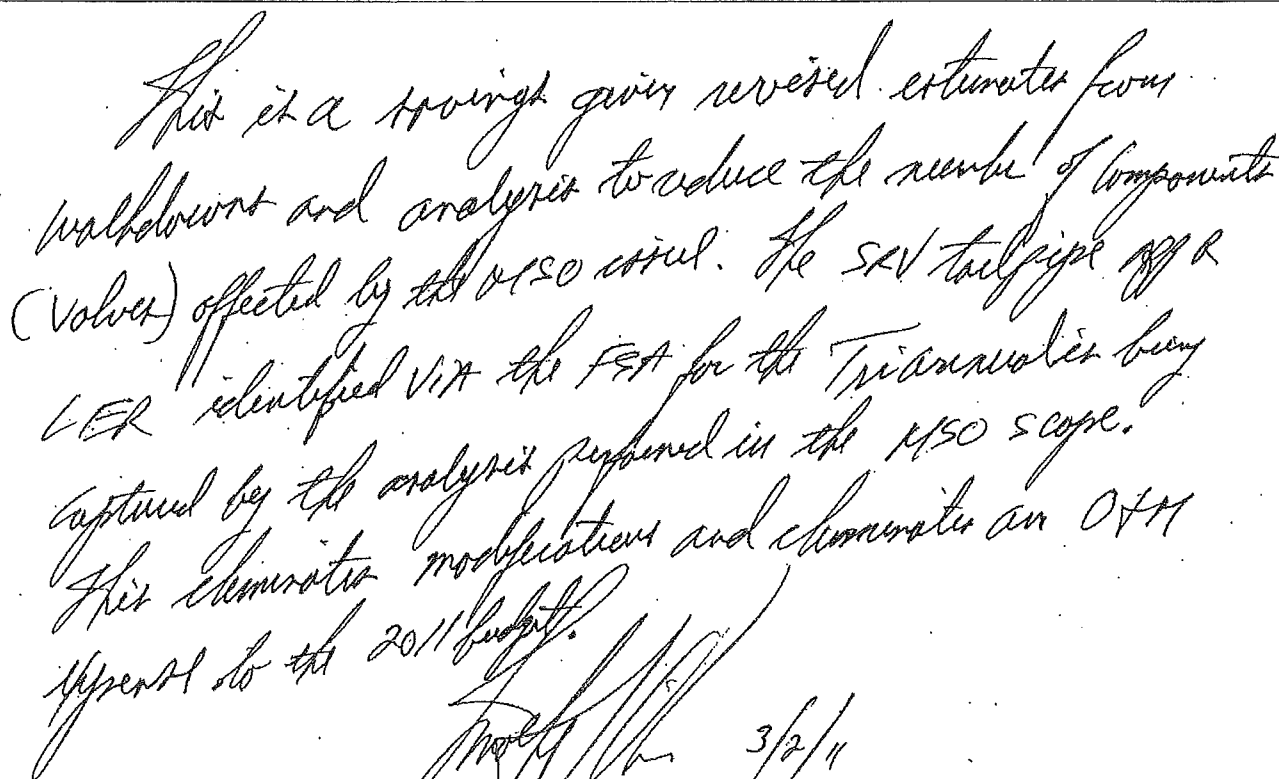 This is a savings given revised estimates from
walkdowns and analysis to reduce the number of components
(valves) affected by the MSO issue. The SRV tailpipe
LER identified VIA the FSA for the Triannual is being
captured by the analysis performed in the MSO scope.
This eliminates modifications and eliminates an O&M
expense to the 2011 budget.
3/2/11